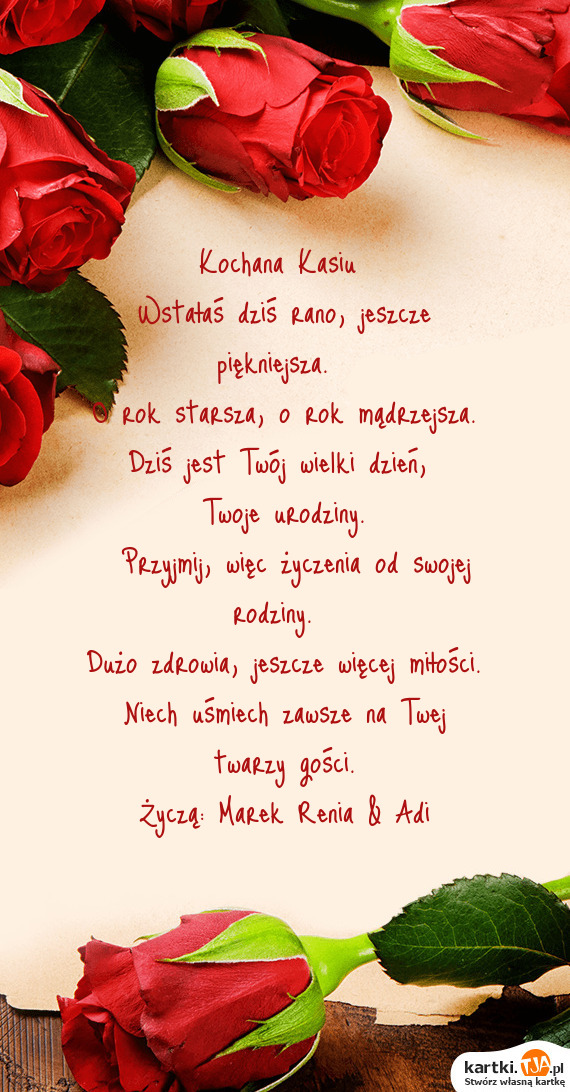 Kochana Kasiu
Wstałaś dziś rano, jeszcze
piękniejsza.
O rok starsza, o rok mądrzejsza.
Dziś jest Twój wielki dzień,
Twoje urodziny.
Przyjmij, więc życzenia od swojej
rodziny.
Dużo zdrowia, jeszcze więcej miłości.
Niech uśmiech zawsze na Twej
twarzy gości.
Życzą: Marek Renia & Adi
kartki.TJA.pl
Stwórz własną kartkę